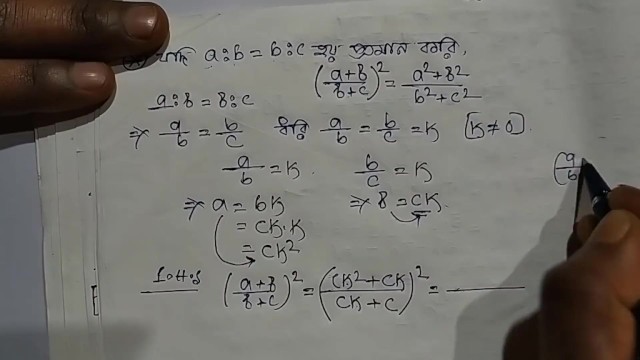 যদি a:b = b:c হয় প্রমাণ করি,
(a+b/b+c)² = a²+b²/b²+c²
a:b = b:c
⇒ a/b = b/c ধরি a/b = b/c = K [K≠0].
a/b = K b/c = K
⇒ a = bK ⇒ b = cK
= cK·K
= cK²
(a/b
L.H.S (a+b/b+c)² = (cK²+cK/cK+c)² =